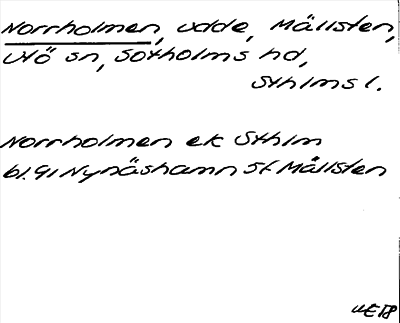 Norrholmen, udde, Mällsten,
Utö sn, Sotholms hd,
Sthlms l.
Norrholmen ek Sthlm
bl. 91 Nynäshamn St. Mällsten